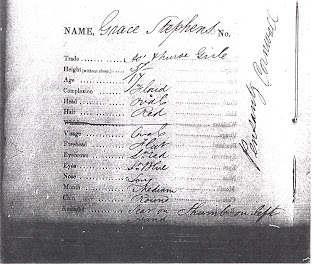 NAME, Grace Stephens No.
Trade Nurse Girl
Height (without shoes)
Age 17
Complexion Florid
Head Oval
Hair Red
Whiskers
Visage Oval
Forehead
Eyebrows Dr. Red
Eyes
Nose Long
Mouth Medium
Chin Round
Remarks Scar on Thumb on left
hand
Penzance Cornwall